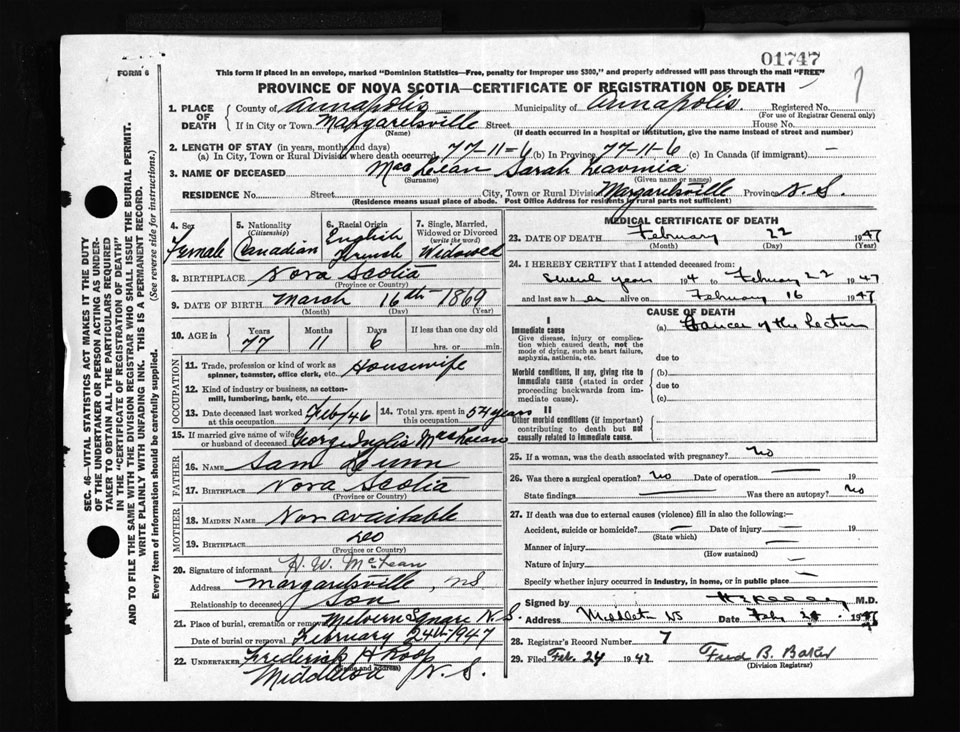 01747
FORM 6
This form if placed in an envelope, marked "Dominion Statistics—Free, penalty for improper use $300," and properly addressed will pass through the mail "FREE"
PROVINCE OF NOVA SCOTIA—CERTIFICATE OF REGISTRATION OF DEATH
1. PLACE OF DEATH County of Annapolis Municipality of Annapolis. Registered No.
(For use of Registrar General only)
If in City or Town Margaretsville Street House No.
(Name) (If death occurred in a hospital or institution, give the name instead of street and number)
2. LENGTH OF STAY (in years, months and days)
(a) In City, Town or Rural Division where death occurred 77-11-6 (b) In Province 77-11-6 (c) In Canada (if immigrant) —
3. NAME OF DECEASED MacLean Sarah Lavinia
(Surname) (Given name or names)
RESIDENCE No. Street City, Town or Rural Division Margaretsville Province N.S.
(Residence means usual place of abode. Post Office Address for residents in rural parts not sufficient)
4. Sex Female
5. Nationality (Citizenship) Canadian
6. Racial Origin English French
7. Single, Married, Widowed or Divorced (write the word) Widowed
8. BIRTHPLACE Nova Scotia
(Province or Country)
9. DATE OF BIRTH March 16th 1869
(Month) (Day) (Year)
10. AGE in Years Months Days If less than one day old
77 11 6 hrs. or min.
OCCUPATION
11. Trade, profession or kind of work as spinner, teamster, office clerk, etc. Housewife
12. Kind of industry or business, as cotton-mill, lumbering, bank, etc.
13. Date deceased last worked at this occupation Feb/46
14. Total yrs. spent in this occupation 54 years
15. If married give name of wife or husband of deceased George Inglis MacLean
FATHER
16. NAME Sam
17. BIRTHPLACE Nova Scotia
(Province or Country)
MOTHER
18. MAIDEN NAME Non available
19. BIRTHPLACE Do
(Province or Country)
20. Signature of informant H. W. McLean
Address Margaretsville, NS
Relationship to deceased Son
21. Place of burial, cremation or removal Melvern Square N.S.
Date of burial or removal February 24th 1947
22. UNDERTAKER Frederick H Roop
(Name and address)
Middleton N.S.
MEDICAL CERTIFICATE OF DEATH
23. DATE OF DEATH February 22 1947
(Month) (Day) (Year)
24. I HEREBY CERTIFY that I attended deceased from:
several years 194 to February 22 1947
and last saw her alive on February 16 1947
CAUSE OF DEATH
I
Immediate cause (a) Cancer of the Rectum
Give disease, injury or complication which caused death, not the mode of dying, such as heart failure, asphyxia, asthenia, etc.
due to
Morbid conditions, if any, giving rise to immediate cause (stated in order proceeding backwards from immediate cause). (b)
due to
(c)
II
Other morbid conditions (if important) contributing to death but not causally related to immediate cause.
25. If a woman, was the death associated with pregnancy? No
26. Was there a surgical operation? No Date of operation — 19
State findings — Was there an autopsy? No
27. If death was due to external causes (violence) fill in also the following:—
Accident, suicide or homicide? — Date of injury — 19
(State which)
Manner of injury —
(How sustained)
Nature of injury —
Specify whether injury occurred in industry, in home, or in public place —
Signed by M.D.
Address Middleton NS Date Feb 24 1947
28. Registrar's Record Number 7
29. Filed Feb. 24 1947 Fred B. Baker
(Division Registrar)
SEC. 46—VITAL STATISTICS ACT MAKES IT THE DUTY
OF THE UNDERTAKER OR PERSON ACTING AS UNDER-
TAKER TO OBTAIN ALL THE PARTICULARS REQUIRED
IN THE "CERTIFICATE OF REGISTRATION OF DEATH"
AND TO FILE THE SAME WITH THE DIVISION REGISTRAR WHO SHALL ISSUE THE BURIAL PERMIT.
WRITE PLAINLY WITH UNFADING INK. THIS IS A PERMANENT RECORD.
Every item of information should be carefully supplied. (See reverse side for instructions.)